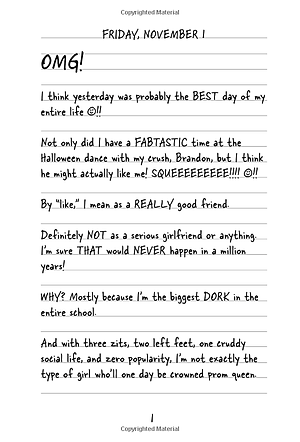 Copyrighted Material
FRIDAY, NOVEMBER 1
OMG!
I think yesterday was probably the BEST day of my
entire life ☺!!
Not only did I have a FABTASTIC time at the
Halloween dance with my crush, Brandon, but I think
he might actually like me! SQUEEEEEEEEE!!!! ☺!!
By “like,” I mean as a REALLY good friend.
Definitely NOT as a serious girlfriend or anything.
I’m sure THAT would NEVER happen in a million
years!
WHY? Mostly because I’m the biggest DORK in the
entire school.
And with three zits, two left feet, one cruddy
social life, and zero popularity, I’m not exactly the
type of girl who’ll one day be crowned prom queen.
1
Copyrighted Material